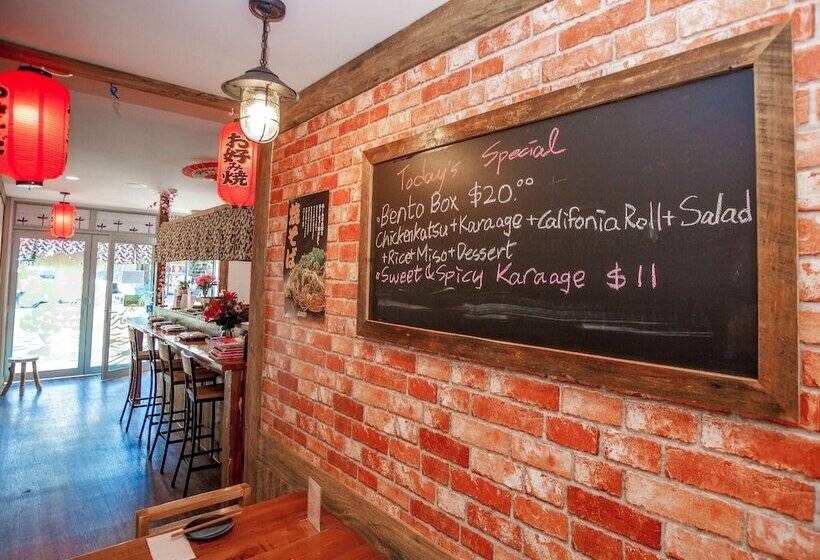 お好み焼
Today's Special
•Bento Box $20.00
Chickenkatsu+Karaage+Califonia Roll+Salad
+Rice+Miso+Dessert
•Sweet&Spicy Karaage $11